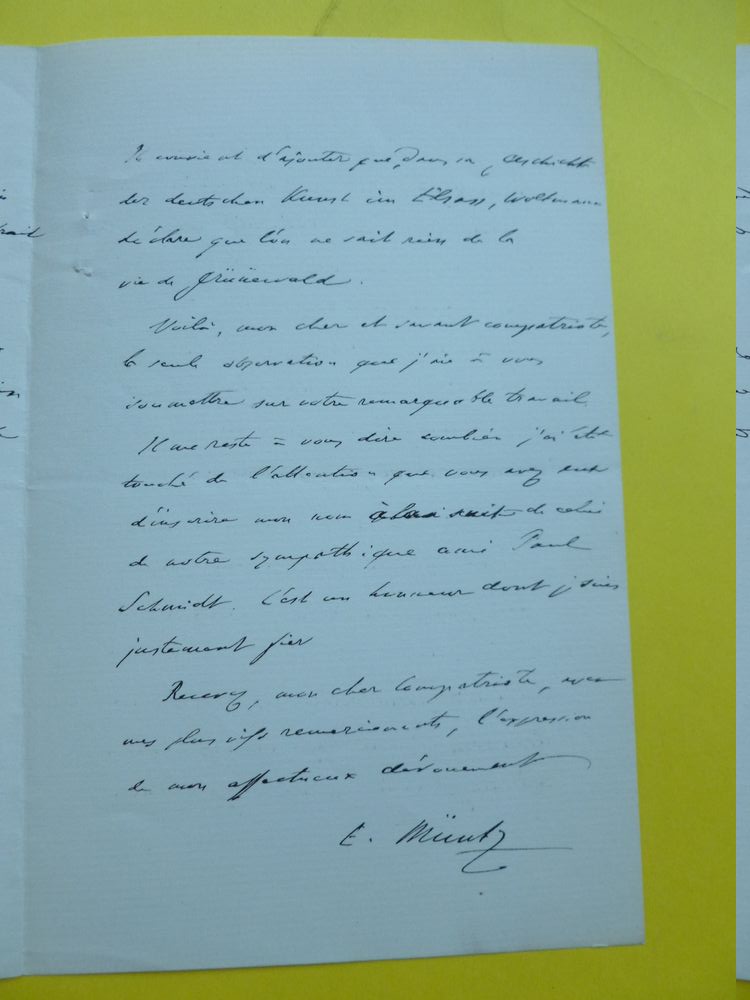 Il convient d'ajouter que, dans sa Geschichte
der deutschen Kunst im Elsass, Woltmann
déclare que l'on ne sait rien de la
vie de Grünewald.
Voilà, mon cher et savant compatriote,
la seule observation que j'aie à vous
soumettre sur votre remarquable travail
Il me reste à vous dire combien j'ai été
touché de l'attention que vous avez eue
d'inscrire mon nom à la suite de celui
de notre sympathique ami Paul
Schmidt. C'est un honneur dont je suis
justement fier
Recevez, mon cher compatriote, avec
mes plus vifs remerciements, l'expression
de mon affectueux dévouement
E. Müntz